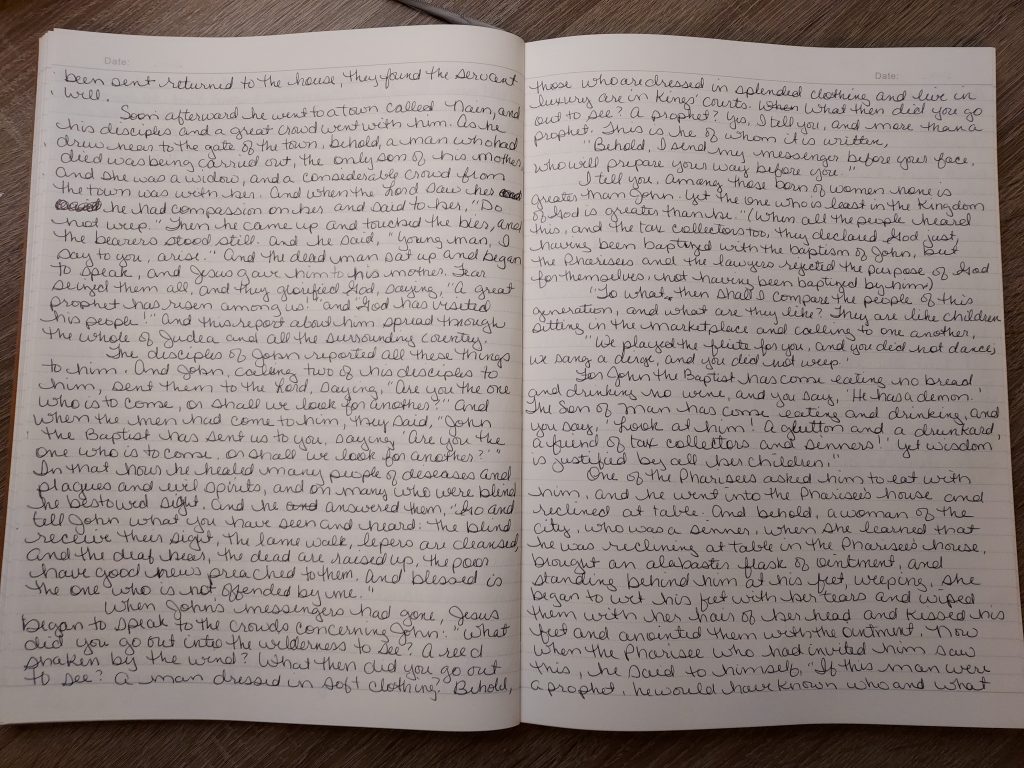 Date:
been sent returned to the house, they found the servant
well.
Soon afterward he went to a town called Nain, and
his disciples and a great crowd went with him. As he
drew near to the gate of the town, behold, a man who had
died was being carried out, the only son of his mother,
and she was a widow, and a considerable crowd from
the town was with her. And when the Lord saw her
he had compassion on her and said to her, "Do
not weep." Then he came up and touched the bier, and
the bearers stood still. and he said, "Young man, I
say to you, arise." And the dead man sat up and began
to speak, and Jesus gave him to his mother. Fear
seized them all, and they glorified God, saying, "A great
prophet has risen among us!" and "God has visited
his people!" And this report about him spread through
the whole of Judea and all the surrounding country.
The disciples of John reported all these things
to him. And John, calling two of his disciples to
him, sent them to the Lord, saying, "Are you the one
who is to come, or shall we look for another?" And
when the men had come to him, they said, "John
the Baptist has sent us to you, saying 'Are you the
one who is to come, or shall we look for another?'"
In that hour he healed many people of deseases and
plagues and evil spirits, and on many who were blind
he bestowed sight. And he and answered them, "Go and
tell John what you have seen and heard: the blind
receive their sight, the lame walk, lepers are cleansed,
and the deaf hear, the dead are raised up, the poor
have good news preached to them. And blessed is
the one who is not offended by me."
When John's messengers had gone, Jesus
began to speak to the crowds concerning John: "What
did you go out into the wilderness to see? A reed
shaken by the wind? What then did you go out
to see? A man dressed in soft clothing? Behold,
Date:
those who are dressed in splended clothing and live in
luxury are in Kings' courts. When What then did you go
out to see? A prophet? Yes, I tell you, and more than a
prophet. This is he of whom it is written,
"Behold, I send my messenger before your face,
who will prepare your way before you."
I tell you, among those born of women none is
greater than John. Yet the one who is least in the Kingdom
of God is greater than he." (When all the people heard
this, and the tax collectors too, they declared God just
having been baptized with the baptism of John, but
the Pharisees and the lawyers rejected the purpose of God
for themselves, not having been baptized by him)
"To what then shall I compare the people of this
generation, and what are they like? They are like children
sitting in the marketplace and calling to one another,
"We played the flute for you, and you did not dance;
we sang a dirge, and you did not weep.'
For John the Baptist has come eating no bread,
and drinking no wine, and you say, 'He has a demon.'
The Son of Man has come eating and drinking, and
you say, 'Look at him! A glutton and a drunkard,
a friend of tax collectors and sinners!' Yet wisdom
is justified by all her children."
One of the Pharisees asked him to eat with
him, and he went into the Pharisee's house and
reclined at table. And behold, a woman of the
city, who was a sinner, when she learned that
he was reclining at table in the Pharisee's house,
brought an alabaster flask of ointment, and
standing behind him at his feet, weeping, she
began to wet his feet with her tears and wiped
them with her hair of her head and kissed his
feet and anointed them with the ointment. Now
when the Pharisee who had invited him saw
this, he said to himself, "If this man were
a prophet, he would have known who and what